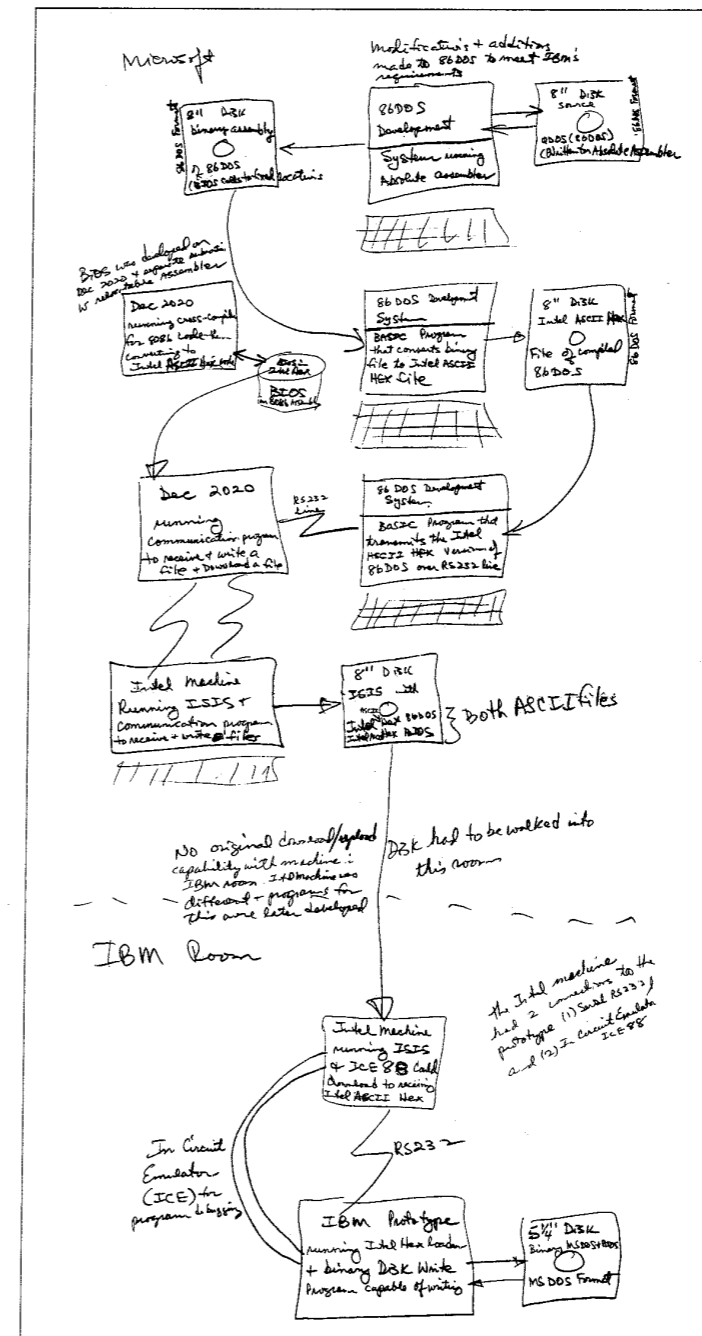 Microsoft
modifications + additions
made to 86DOS to meet IBM's
requirements
86DOS Format
8" Disk
binary assembly
of 86DOS
(BIOS calls to fixed locations
86DOS
Development
System running
Absolute assembler
8" Disk
source
QDOS (86DOS)
(Written for Absolute Assembler
86DOS Format
BIOS was developed on
Dec 2020 + separate
w relocatable Assembler
Dec 2020
running cross-compiler
for 8086 code then
converting to
Intel ASCII Hex code
BIOS in
Intel Hex
BIOS
in 8086
86 DOS Development
System
BASIC Program
that converts binary
file to Intel ASCII
HEX file
8" Disk
Intel ASCII Hex
File of compiled
86 DOS
86 DOS Format
Dec 2020
running
communication program
to receive + write a
file + Download a file
RS232
line
86 DOS Development
System
BASIC Program that
transmits the Intel
ASCII HEX version of
86DOS over RS232 line
Intel Machine
Running ISIS +
communication program
to receive + write files
8" Disk
ISIS with
ASCII
Intel Hex 86DOS
Intel Hex BIOS
Both ASCII files
No original download/upload
capability with machine in
IBM room. Intel machine was
different + programs for
this were later developed
Disk had to be walked into
this room
IBM Room
the Intel machine
had 2 connections to the
prototype (1) Serial RS232
and (2) In Circuit Emulator
ICE 88
Intel Machine
running ISIS
& ICE 88
Download to receiving
Intel ASCII Hex
In Circuit
Emulator
(ICE) for
program debugging
RS232
IBM Prototype
running Intel Hex loader
+ binary Disk Write
Program capable of writing
5¼" Disk
Binary MSDOS+BIOS
MS DOS Format